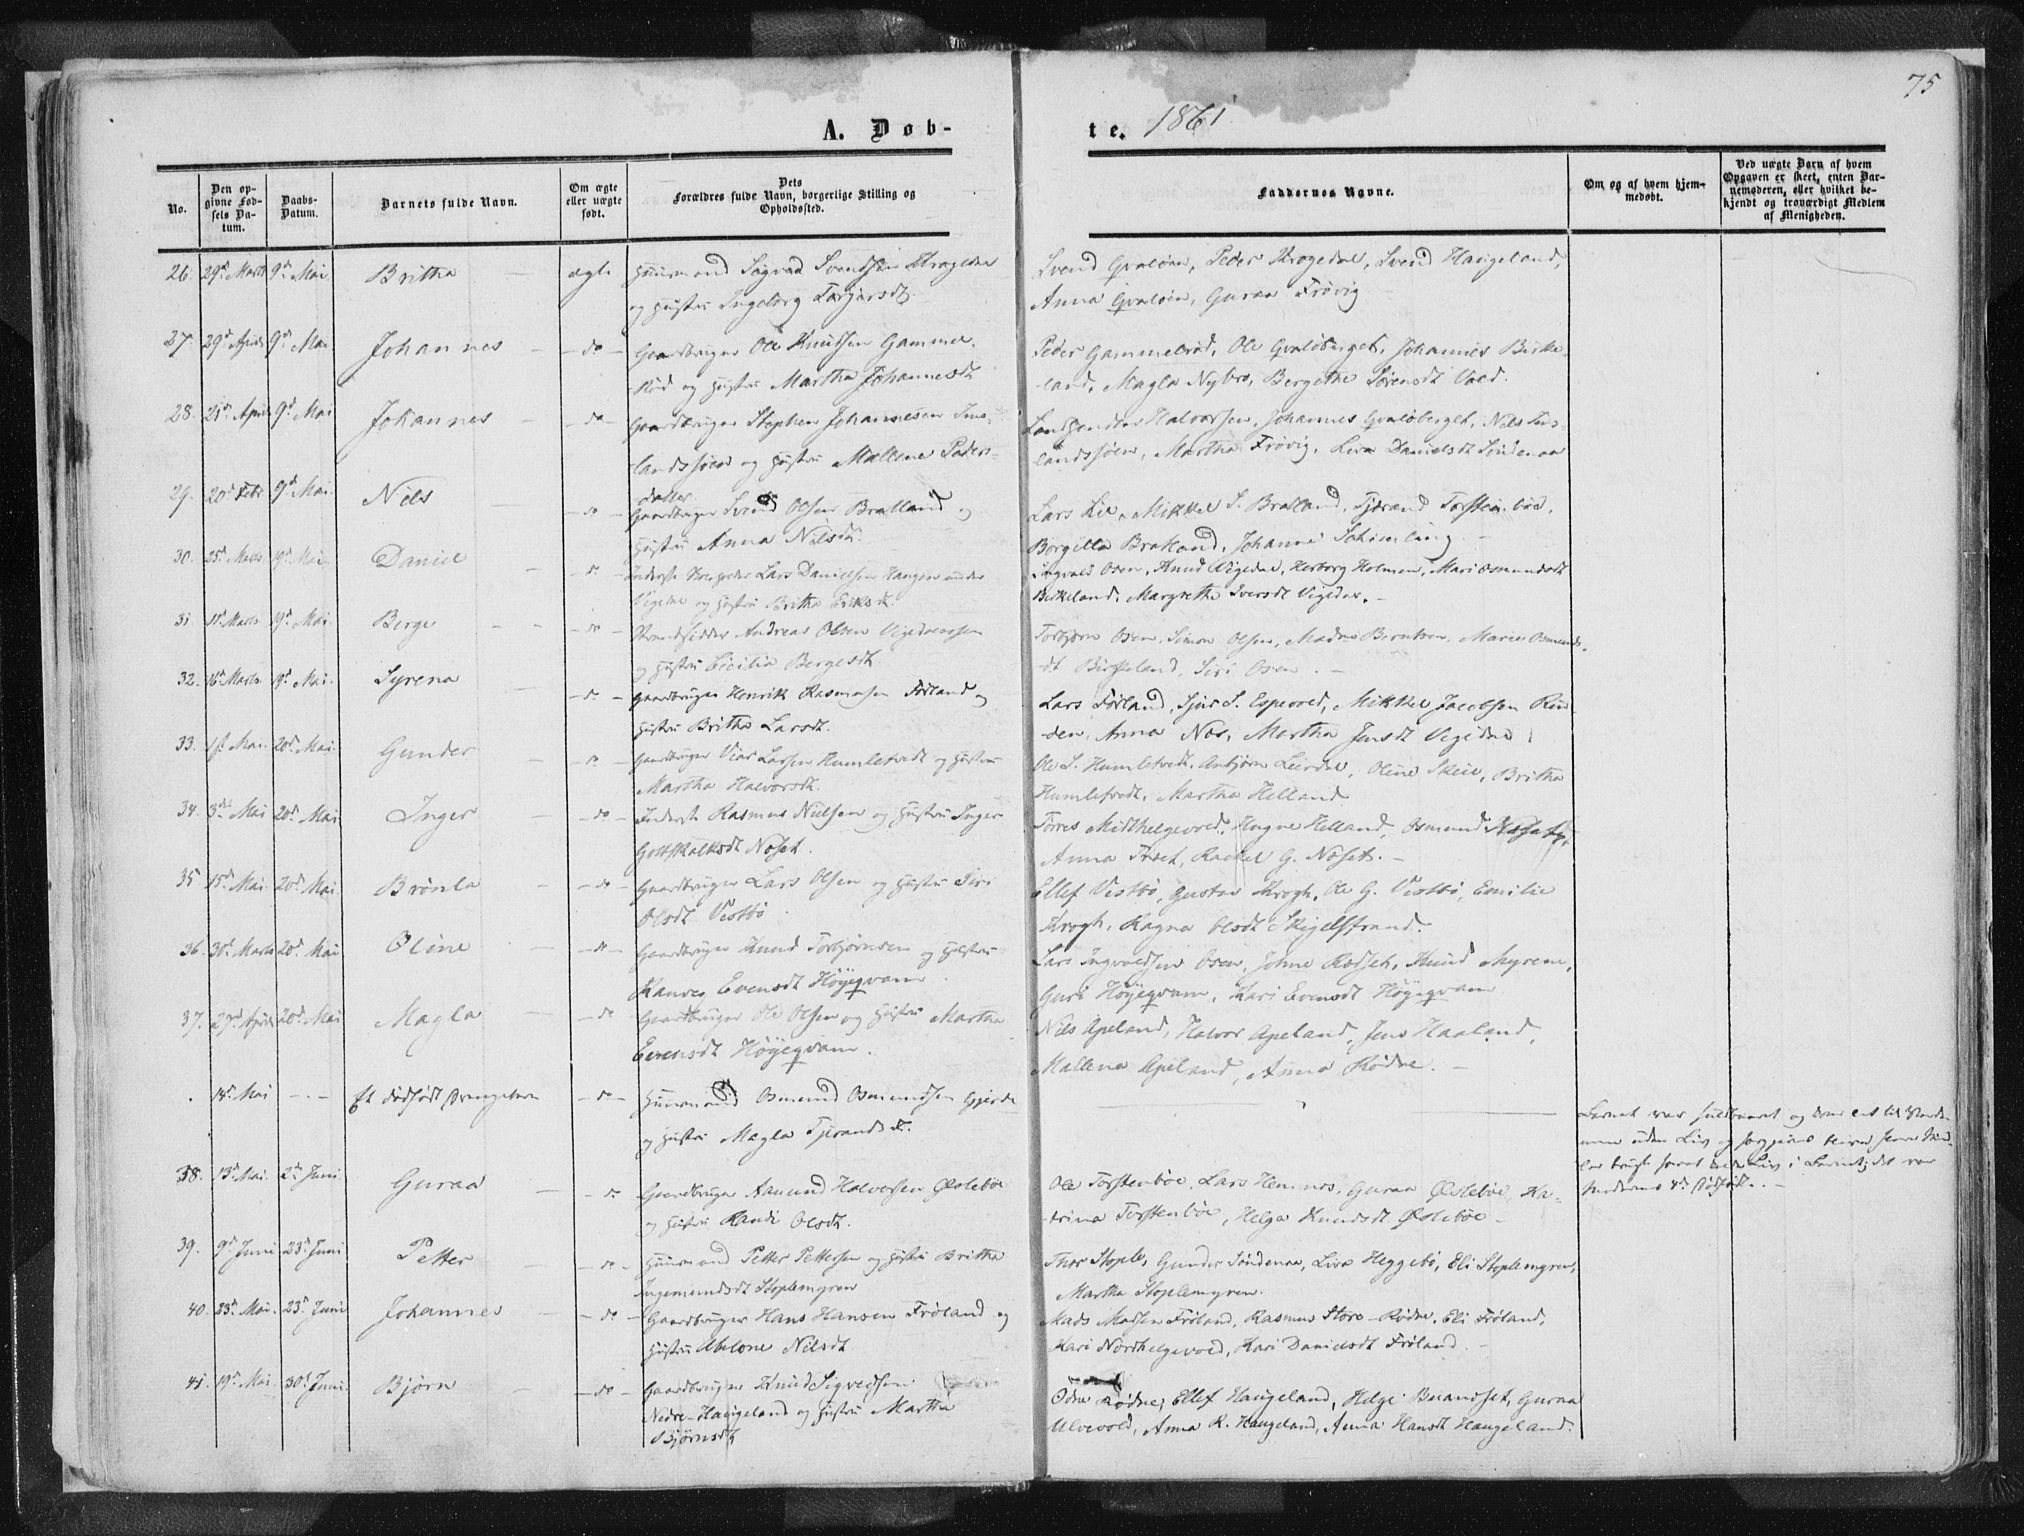 75
A. Døb-
te. 1861
No.
Den op-
givne Fød-
sels Da-
tum.
Daabs-
Datum.
Barnets fulde Navn.
Om ægte
eller uægte
født.
Dets
Forældres fulde Navn, borgerlige Stilling og
Opholdssted.
Faddernes Navne.
Om og af hvem hjem-
medøbt.
Ved uægte Barn af hvem
Opgaven er skeet, enten Bar-
nemoderen, eller hvilket be-
kjendt og troværdigt Medlem
af Menigheden.
26. 29de Marts 9de Mai Britha ægte Huusmand Sigvad Svendsen
og Hustru Ingeborg
Svend Qvaløen, Peder Krogedal, Svend Haugeland,
Anna Qvaløen, Guraa Frøvig
27. 29de April 9de Mai Johannes do Gaardbruger Ole Knudsen Gammel-
-rød og Hustru Martha Johannesdt
Peder Gammelrød, Ole Qvaløberget, Johannes Birke-
-land, Magla Nybro, Bergethe Sørensdt Vold.
28. 21de April 9de Mai Johannes do Gaardbruger Stephen Johannesen Ims-
landssjøen og Hustru Mallene Peders-
datter
Halvorsen, Johannes Qvaløberget, Nils Ims-
landssjøen, Martha Frøvig, Liva Danielsdt Søndenaa
29. 20de Febr 9de Mai Nils do Gaardbruger Svend Olsen Bratland og
Hustru Anna Nilsdt.
Lars Lie, Mikkel S. Bratland, Tjerand Torsteinbøe,
Borgilla Bratland, Johanne Schimling.
30. 25de Marts 19de Mai Daniel do Inderst Lars Danielsen Haugen under
Vigedal og Hustru Britha Eriksdt.
Ingvald Osen, Knud Vigedal, Herborg Holmen, Mari Osmundsdt
Birkeland, Margrethe Iversdt Vigedal.
31. 11te Marts 19de Mai Berge do Strandsidder Andreas Olsen Vigedalsosen
og Hustru Cicilia Bergesdt.
Torbjørn Osen, Simon Olsen, Madna Berntsen, Maren Osmunds-
dt Birkeland, Siri Osen.
32. 16de Marts 19de Mai Syrena do Gaardbruger Henrik Rasmusen Førland og
Hustru Britha Larsdt.
Lars Førland, Sjur S. Espevold, Mikkel Jacobsen Rin-
-den, Anna Næs, Martha Jensdt Vigedal.
33. 1ste Mai 20de Mai Gunder do Gaardbruger Viar Larsen Humletvedt og Hustru
Martha Halvorsdt.
Ole L. Humletvedt, Anbjørn Leirdal, Oline Skeie, Britha
Humletvedt, Martha Helland.
34. 3die Mai 20de Mai Inger do Inderst Rasmus Nielsen og Hustru Inger
Gottskalksdt Næset.
Torres Midthelgevold, Hagne Helland, Osmund Næset,
Anna Træet, Rachel G. Næset.
35 15de Mai 20de Mai Brønla do Gaardbruger Lars Olsen og Hustru Siri
Olsdt Vestbø.
Ellef Vestbø, Gustav Krogh, Ole G. Vestbø, Emilie
Krogh, Ragna Olsdt Skigelstrand.
36. 30de Marts 20de Mai Oline do Gaardbruger Knud Torbjørnsen og Hustru
Ranveg Evensdt Høyeqvam.
Lars Ingvaldsen Osen, Johne Rødset, Knud Myrene,
Guri Høyeqvam, Kari Evensdt Høyeqvam
37. 27de April 20de Mai Magla do Gaardbruger Ole Olsen og Hustru Martha
Evensdt Høyeqvam.
Nils Apeland, Halvor Apeland, Jens Haaland,
Mallena Apeland, Anna Rødne.
14de Mai Et dødfødt Drengebarn do Huusmand Osmund Osmundsen Gjerde
og Hustru Magla Tjerandsdt.
Barnet var fuldbaaret og kom til Verde-
nen uden Liv
38. 13de Mai 2den Juni Guraa do Gaardbruger Aamund Halvorsen Østebøe
og Hustru Randi Olsdt.
Ole Torstenbøe, Lars Hemnes, Guraa Østebøe, Ka-
-trina Torstenbøe, Helga Knudsdt Østebøe
39. 9de Juni 23de Juni Petter do Huusmand Petter Pettersen og Hustru Britha
Ingemundsdt Stoplemyren
Thor Stople, Gunder Søndenaa, Liva Heggebø, Eli Stoplemyren,
Martha Stoplemyren.
40. 23de Mai 23de Juni Johannes do Gaardbruger Hans Hansen Frøland og
Hustru Abelone Nilsdt
Mads Madsen Frøland, Rasmus Store-Rødne, Eli Frøland,
Kari Nordhelgevold, Kari Danielsdt Frøland.
41. 19de Mai 30te Juni Bjørn do Gaardbruger Knud Sigvedsen
Nedre-Haugeland og Hustru Martha
Bjørnsdt
Odne Rødne, Ellef Haugeland, Helge Buandset, Guraa
Ulvevold, Anna K. Haugeland, Anna Hansdt Haugeland.